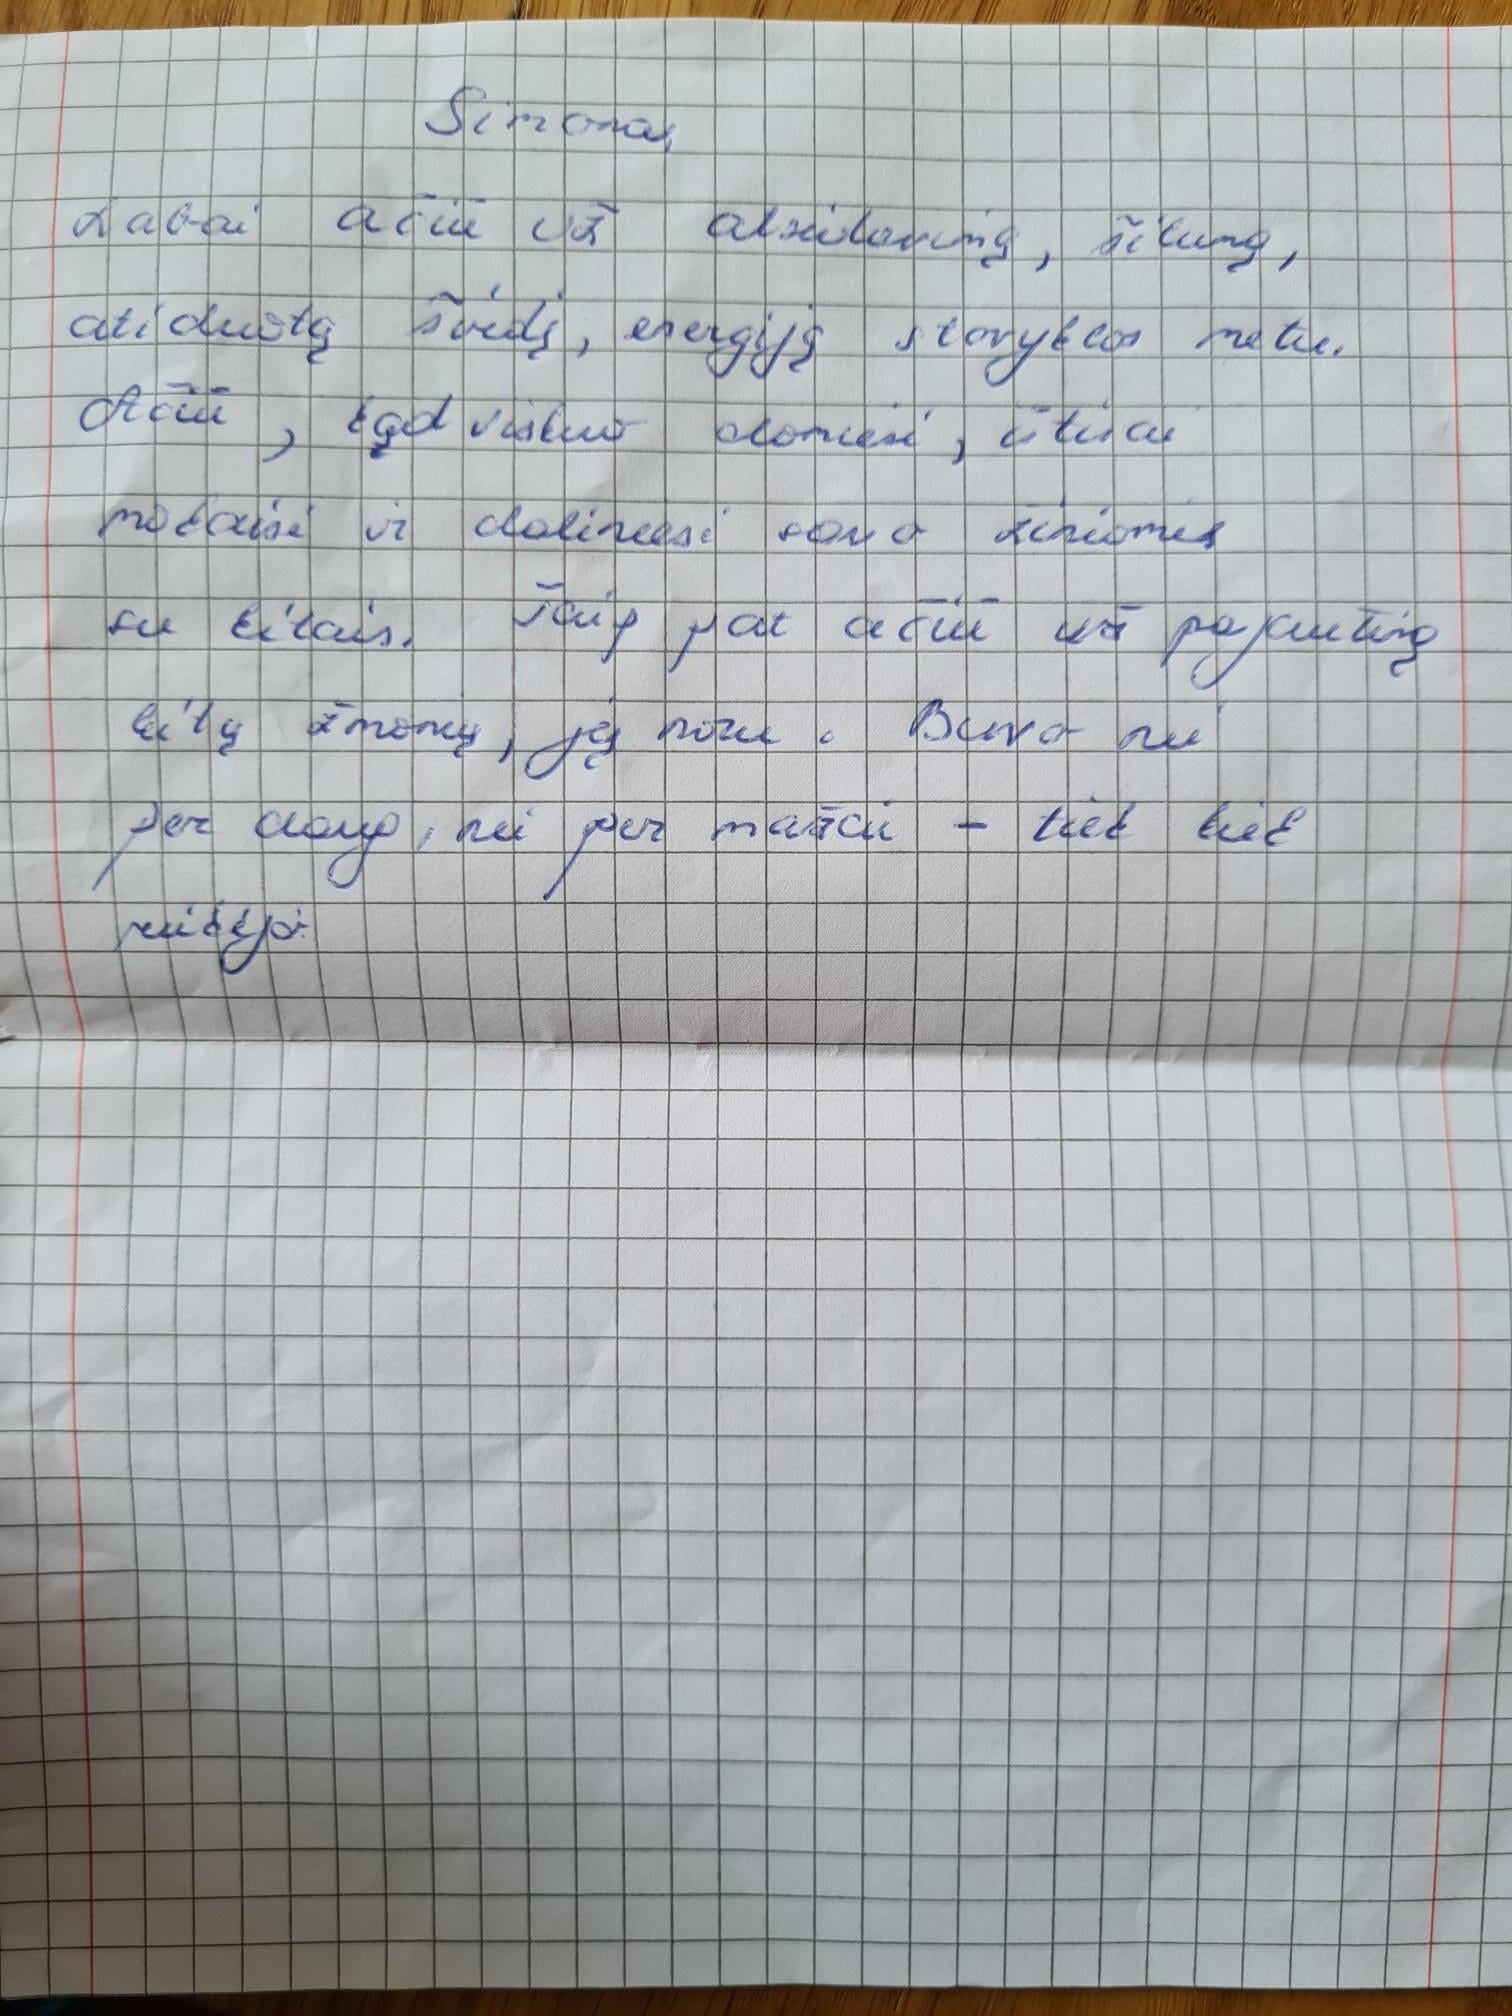 Simona,
Labai ačiū už atsidavimą, šilumą,
atiduotą širdį, energiją stovyklos metu.
Ačiū, kad viskuo domiesi, ištisai
mokaisi ir dalinaisi savo žiniomis
su kitais. Taip pat ačiū už pajautimą
kitų žmonių, jų norų. Buvo nei
per daug, nei per mažai - tiek kiek
reikėjo.